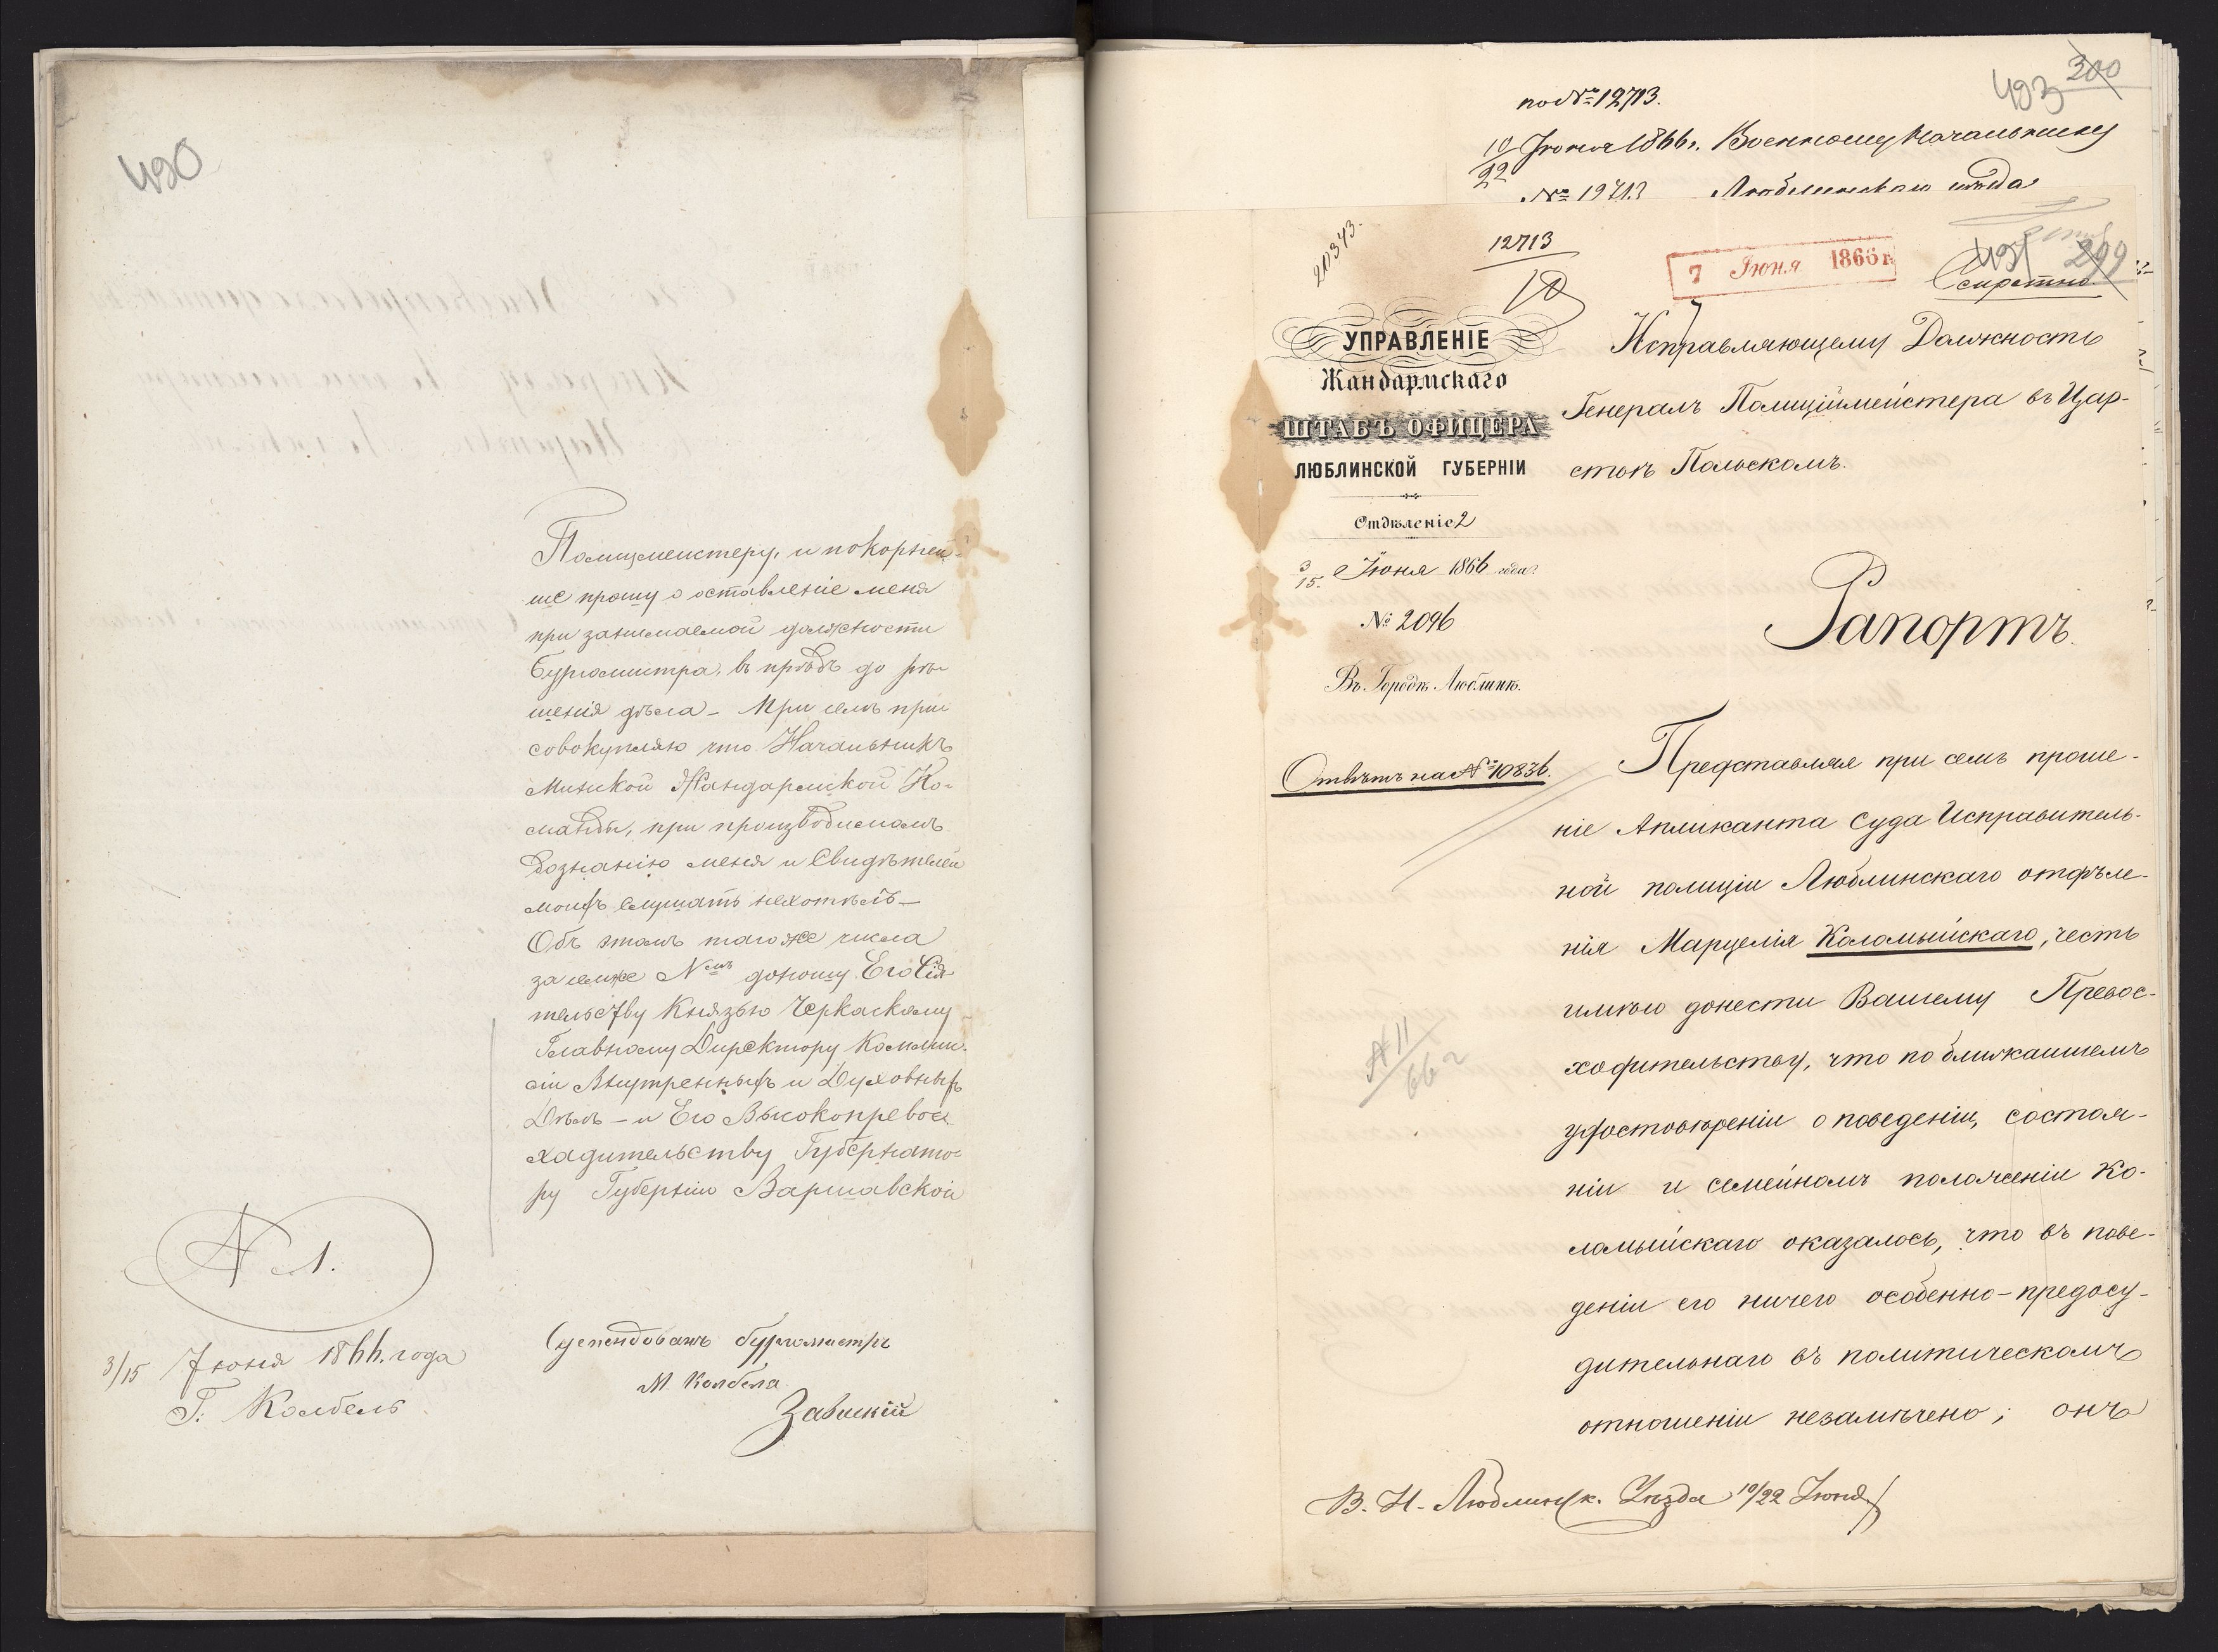 490
Полицмейстеру, и покорнѣй-
ше прошу о оставленіе меня
при занимаемой должности
Бургомистра, въ предь до рѣ-
шенія дѣла – При семъ при
совокупляю что Начальникъ
Минской Жандармской Ко-
манды, при производимомъ
Дознанію меня и Свидѣтелей
моихъ слушать нехотѣлъ –
Объ этомъ того же числа
за симже №мъ доношу Его Сія
тельству Князью Черкаскому
Главному Директору Коммис-
сіи Внутреннихъ и Духовныхъ
Дѣлъ – и Его Высокопревос
ходительству Губернато-
ру Губерніи Варшавской
№ 1.
3/15 Іюня 1866. года
Г. Колбель
Суспендованъ бургомистръ
М. Колбела
по № 12713.
493 300
10/22 Іюня 1866 г. Военному Начальнику
№ 12713 Люблинскаго уѣзда
20343.
12713
7 Іюня 1866 г
491 299
Секретно.
УПРАВЛЕНІЕ
Жандармскаго
ШТАБЪ ОФИЦЕРА
ЛЮБЛИНСКОЙ ГУБЕРНІИ
Отдѣленіе 2
3/15. Іюня 1866 года.
№ 2096
Въ Городѣ Люблинѣ.
Исправляющему Должность
Генералъ Полиціймейстера въ Цар-
ствѣ Польскомъ.
Рапортъ.
Отвѣтъ на № 10836.
Представляя при семъ проше-
ніе Апликанта Суда Исправитель-
ной полиціи Люблинскаго отдѣле-
нія Марцелія Коломыйскаго, честь
имѣю донести Вашему Превос-
ходительству, что по ближайшемъ
удостовѣреніи о поведеніи, состоя-
ніи и семейномъ положеніи Ко-
ломыйскаго оказалось, что въ пове-
деніи его ничего особенно-предосу-
дительнаго въ политическомъ
отношеніи незамѣчено; онъ
В. Н. Люблинск. Уѣзда 10/22 Іюня